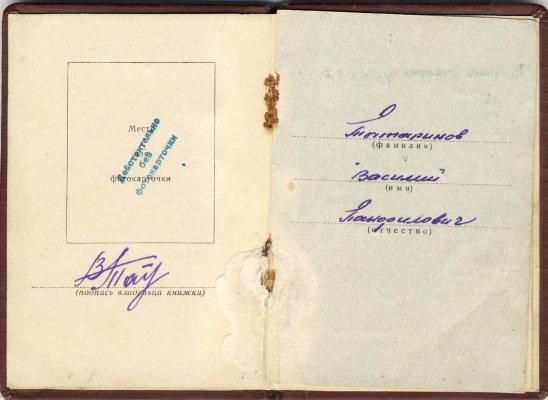 Место
для
фотокарточки
Действительно
без
фотокарточки
ВТат
(подпись владельца книжки)
Татаринов
(фамилия)
Василий
(имя)
Панфилович
(отчество)